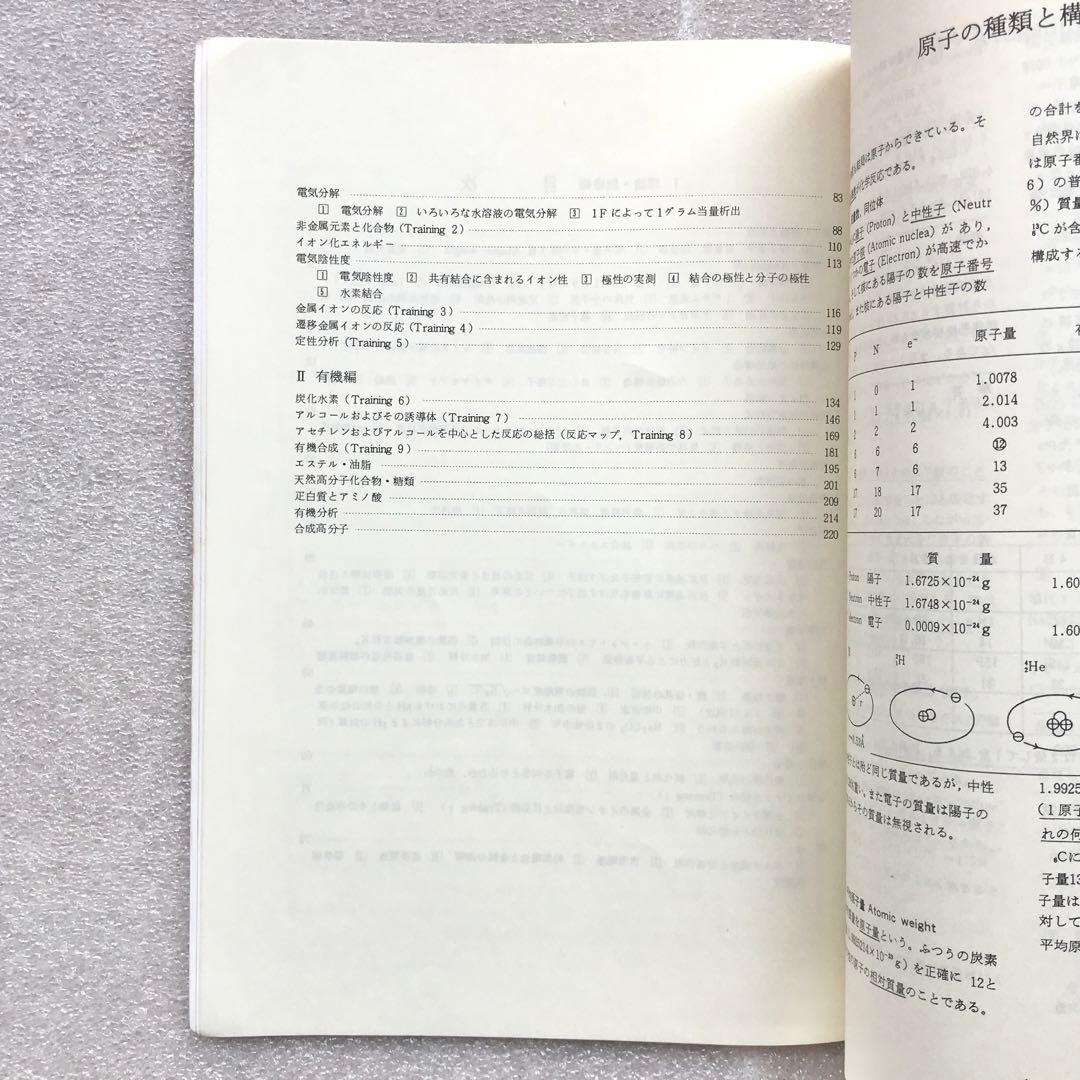 電気分解 83
1 電気分解 2 いろいろな水溶液の電気分解 3 1Fによって1グラム当量析出
非金属元素と化合物(Training 2) 88
イオン化エネルギー 110
電気陰性度 113
1 電気陰性度 2 共有結合に含まれるイオン性 3 極性の実測 4 結合の極性と分子の極性
5 水素結合
金属イオンの反応(Training 3) 116
遷移金属イオンの反応(Training 4) 119
定性分析(Training 5) 129
II 有機編
炭化水素(Training 6) 134
アルコールおよびその誘導体(Training 7) 146
アセチレンおよびアルコールを中心とした反応の総括(反応マップ, Training 8) 169
有機合成(Training 9) 181
エステル・油脂 195
天然高分子化合物・糖類 201
疋白質とアミノ酸 209
有機分析 214
合成高分子 220
原子の種類と構
原子からできている。そ
化学反応である。
同位体
子(Proton)と中性子(Neutr
(Atomic nuclea)があり,
電子(Electron)が高速でか
核にある陽子の数を原子番号
また核にある陽子と中性子の数
P N e⁻ 原子量
1 0 1 1.0078
1 1 1 2.014
2 2 2 4.003
6 6 6 ⑫
6 7 6 13
17 18 17 35
17 20 17 37
質 量
Proton 陽子 1.6725×10⁻²⁴g 1.60
Neutron 中性子 1.6748×10⁻²⁴g
electron 電子 0.0009×10⁻²⁴g 1.60
²₁H ⁴₂He
r
0.53Å
殆ど同じ質量であるが, 中性
重い。また電子の質量は陽子の
その質量は無視される。
原子量 Atomic weight
原子量という。ふつうの炭素
g)を正確に 12と
原子の相対質量のことである。
の合計を
自然界に
は原子番
6)の普
%)質量
¹³₆Cが含
構成する
1.9925
(1原子
れの何
₆Cに
子量13
子量は
対して
平均原